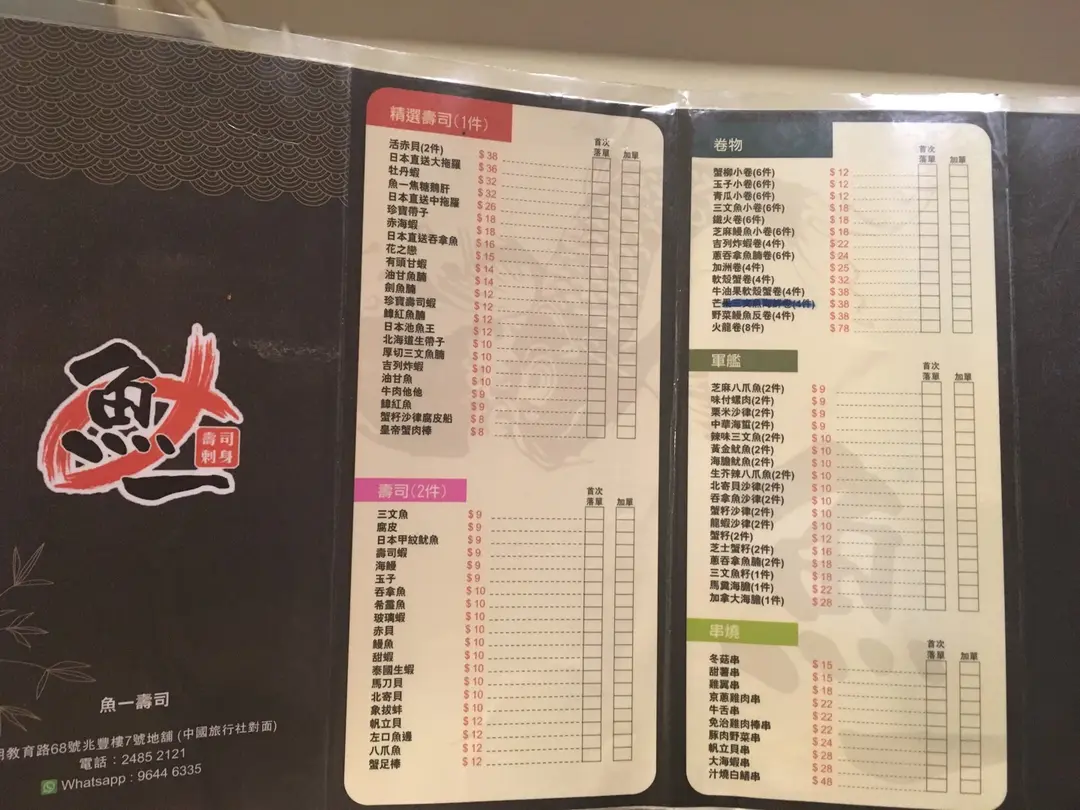 魚一
壽司
刺身
魚一壽司
教育路68號兆豐樓7號地舖 (中國旅行社對面)
電話：2485 2121
Whatsapp : 9644 6335
精選壽司(1件)
首次落單 加單
活赤貝(2件) $ 38
日本直送大拖羅 $ 36
牡丹蝦 $ 32
魚一焦糖鵝肝 $ 32
日本直送中拖羅 $ 26
珍寶帶子 $ 18
赤海蝦 $ 18
日本直送吞拿魚 $ 16
花之戀 $ 15
有頭甘蝦 $ 14
油甘魚腩 $ 14
劍魚腩 $ 12
珍寶壽司蝦 $ 12
鱆紅魚腩 $ 12
日本池魚王 $ 12
北海道生帶子 $ 10
厚切三文魚腩 $ 10
吉列炸蝦 $ 10
油甘魚 $ 10
牛肉他他 $ 9
鱆紅魚 $ 9
蟹籽沙律腐皮船 $ 8
皇帝蟹肉棒 $ 8
壽司(2件)
首次落單 加單
三文魚 $ 9
腐皮 $ 9
日本甲紋魷魚 $ 9
壽司蝦 $ 9
海鰻 $ 9
玉子 $ 9
吞拿魚 $ 10
希靈魚 $ 10
玻璃蝦 $ 10
赤貝 $ 10
鰻魚 $ 10
甜蝦 $ 10
泰國生蝦 $ 10
馬刀貝 $ 10
北寄貝 $ 10
象拔蚌 $ 10
帆立貝 $ 12
左口魚邊 $ 12
八爪魚 $ 12
蟹足棒 $ 12
卷物
首次落單 加單
蟹柳小卷(6件) $ 12
玉子小卷(6件) $ 12
青瓜小卷(6件) $ 12
三文魚小卷(6件) $ 18
鐵火卷(6件) $ 18
芝麻鰻魚小卷(6件) $ 18
吉列炸蝦卷(4件) $ 22
蔥吞拿魚腩卷(6件) $ 24
加洲卷(4件) $ 25
軟殼蟹卷(4件) $ 32
牛油果軟殼蟹卷(4件) $ 38
芒果三文魚卷(4件) $ 38
野菜鰻魚反卷(4件) $ 38
火龍卷(8件) $ 78
軍艦
首次落單 加單
芝麻八爪魚(2件) $ 9
味付螺肉(2件) $ 9
粟米沙律(2件) $ 9
中華海蜇(2件) $ 9
辣味三文魚(2件) $ 10
黃金魷魚(2件) $ 10
海膽魷魚(2件) $ 10
生芥辣八爪魚(2件) $ 10
北寄貝沙律(2件) $ 10
吞拿魚沙律(2件) $ 10
蟹籽沙律(2件) $ 10
龍蝦沙律(2件) $ 10
蟹籽(2件) $ 12
芝士蟹籽(2件) $ 16
蔥吞拿魚腩(2件) $ 18
三文魚籽(1件) $ 18
馬糞海膽(1件) $ 22
加拿大海膽(1件) $ 28
串燒
首次落單 加單
冬菇串 $ 15
甜薯串 $ 15
雞翼串 $ 18
京蔥雞肉串 $ 22
牛舌串 $ 22
免治雞肉棒串 $ 22
豚肉野菜串 $ 24
帆立貝串 $ 28
大海蝦串 $ 28
汁燒白鱔串 $ 48